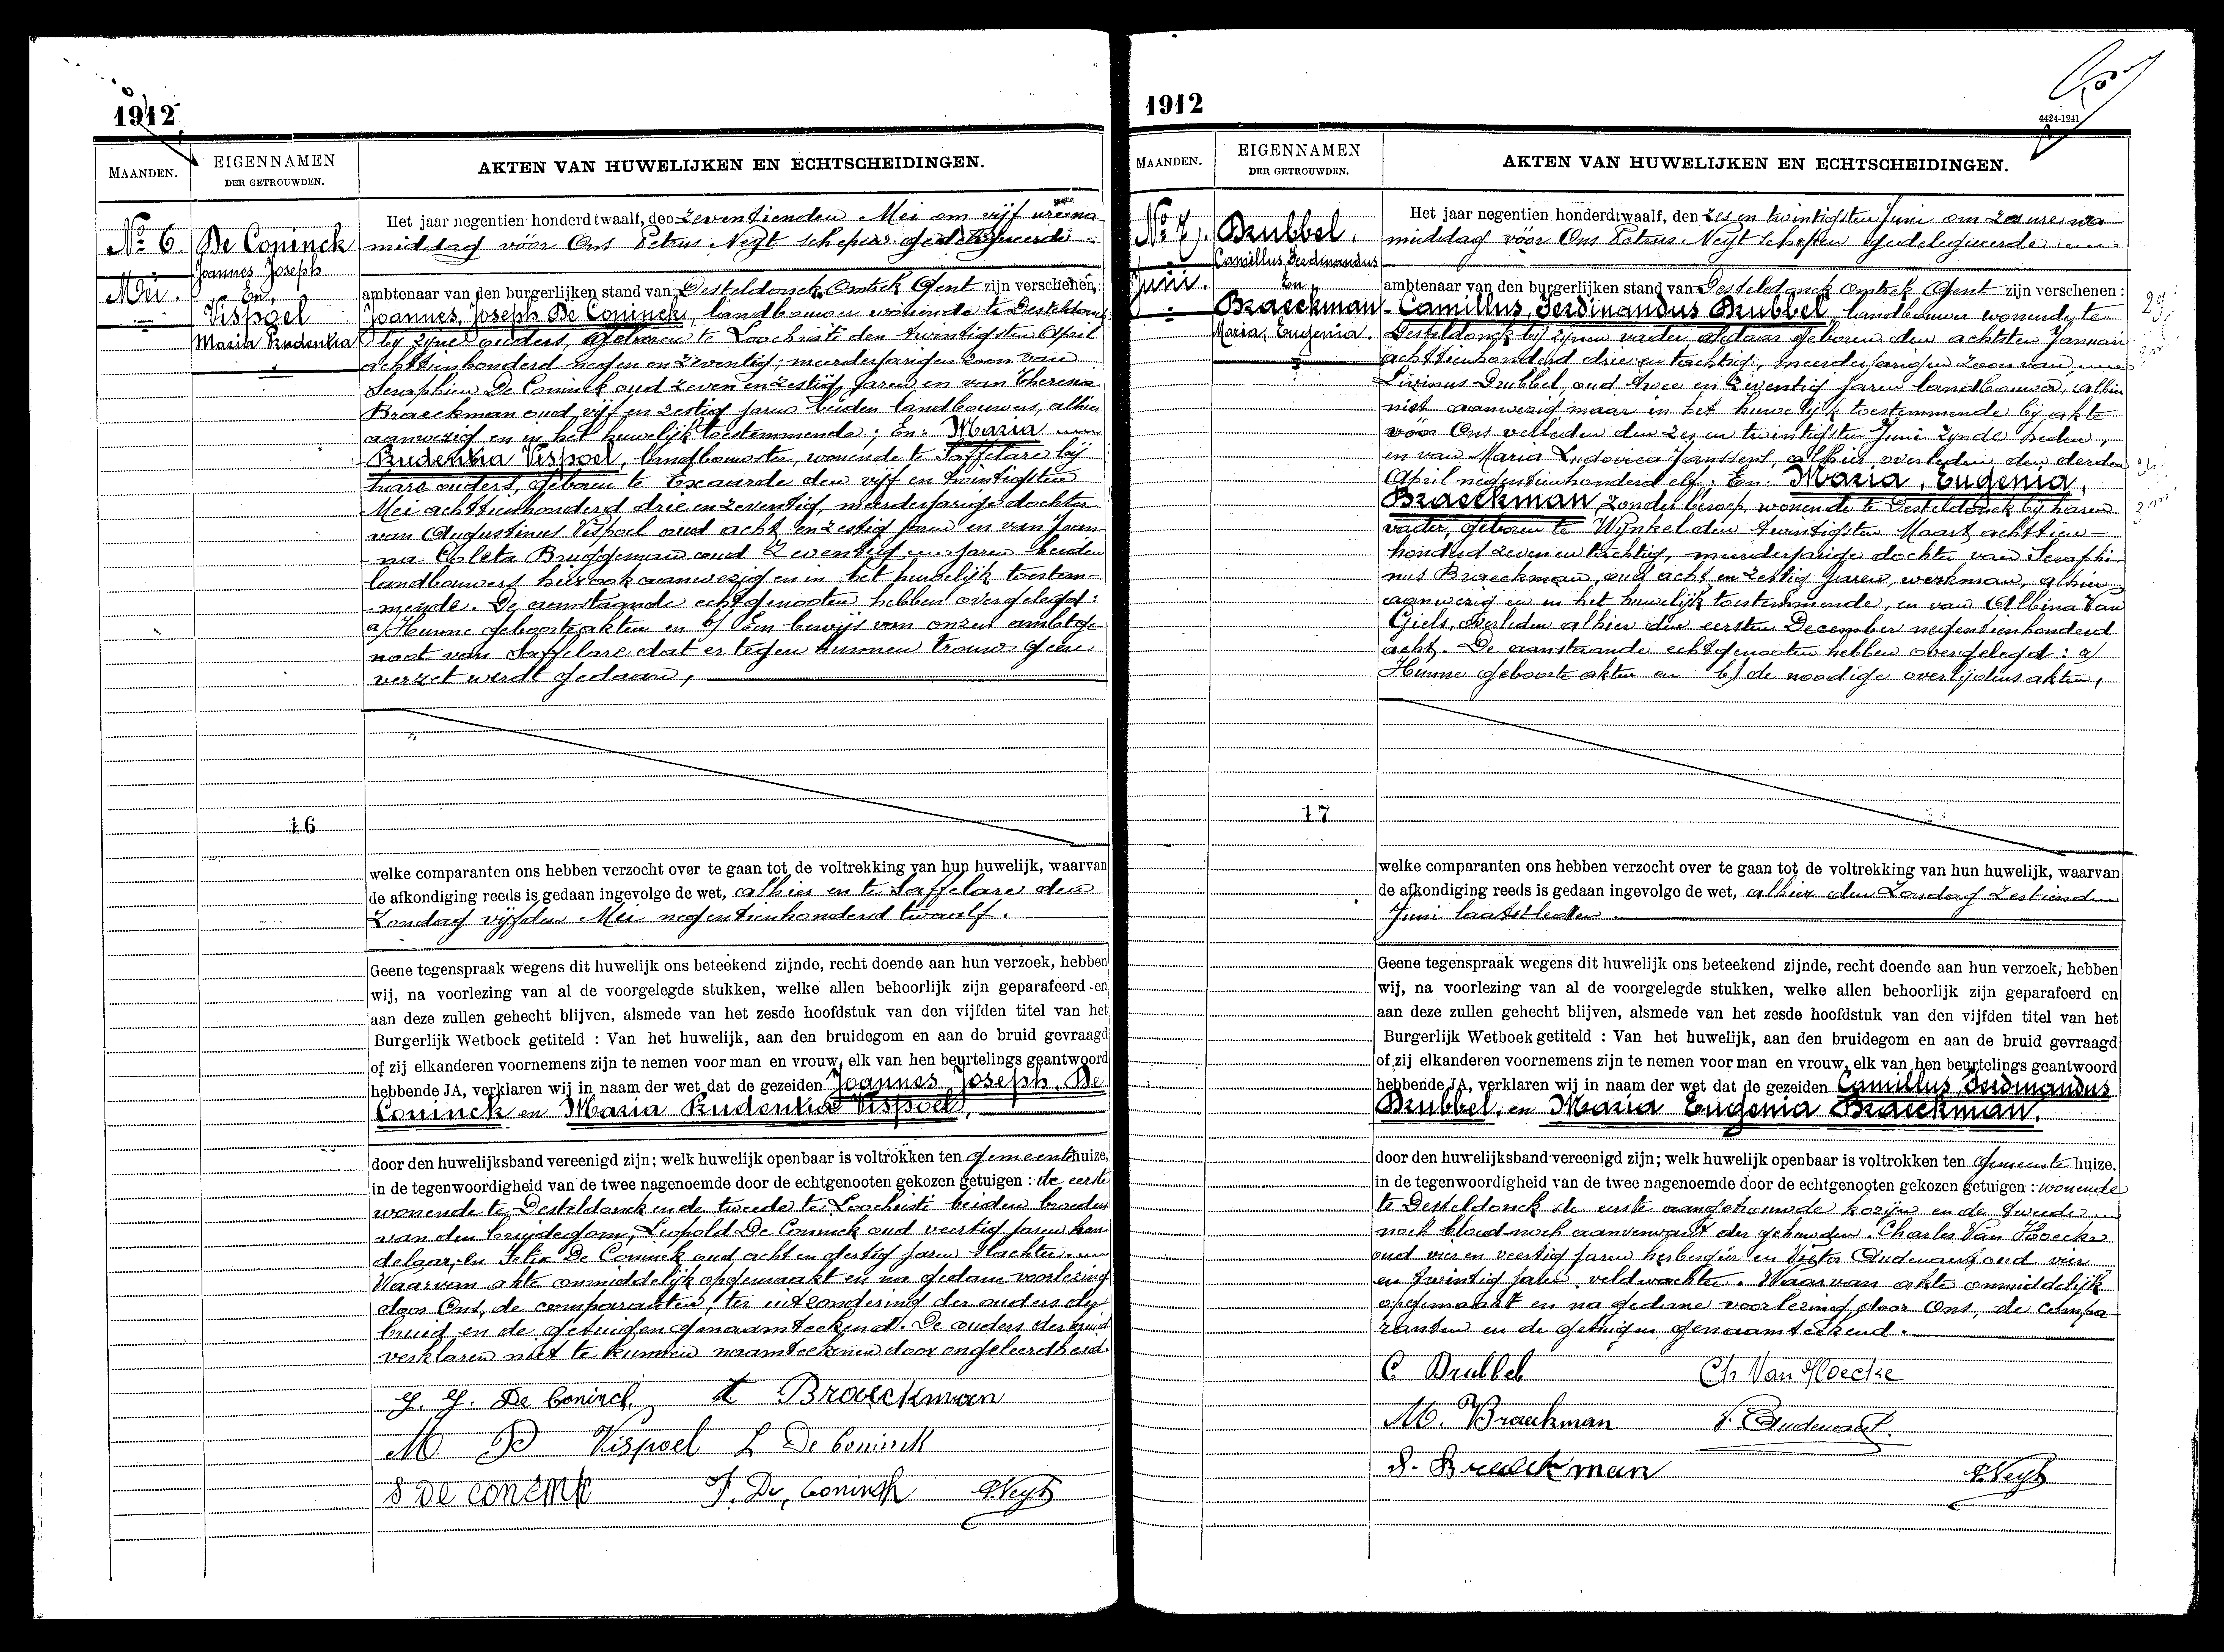 1912
MAANDEN.
EIGENNAMEN
DER GETROUWDEN.
AKTEN VAN HUWELIJKEN EN ECHTSCHEIDINGEN.
No 6
Mei.
De Coninck
Joannes Joseph
En,
Vispoel
Maria Prudentia
16
Het jaar negentien honderd twaalf, den zeventienden Mei om vijf ure na
middag vóór Ons Petrus Neyt schepen gedelegueerde
ambtenaar van den burgerlijken stand van Desteldonck Omtrek Gent zijn verschenen,
Joannes, Joseph De Coninck, landbouwer wonende te Desteldonck
bij zijne ouders, geboren te Loochristi den twintigsten April
achttienhonderd negen en zeventig, meerderjarigen zoon van
Seraphien De Coninck oud zeven en zestig jaren en van Theresia
Braeckman oud vijf en zestig jaren beiden landbouwers, alhier
aanwezig en in het huwelijk toestemmende; En: Maria
Prudentia Vispoel, landbouwster, wonende te Saffelare bij
hare ouders, geboren te Exaarde den vijf en twintigsten
Mei achttienhonderd drie en zeventig, meerderjarige dochter
van Augustinus Vispoel oud acht en zestig jaren en van Joan-
na Coleta Bruggeman oud zeventig jaren beiden
landbouwers hier ook aanwezig en in het huwelijk toestem-
mende. De aanstaande echtgenooten hebben overgelegd:
a) Hunne geboorteakten en b) Een bewijs van onzen ambtge
noot van Saffelare dat er tegen hunnen trouw geen
verzet werdt gedaan,
welke comparanten ons hebben verzocht over te gaan tot de voltrekking van hun huwelijk, waarvan
de afkondiging reeds is gedaan ingevolge de wet, alhier en te Saffelare den
Zondag vijfden Mei negentienhonderd twaalf.
Geene tegenspraak wegens dit huwelijk ons beteekend zijnde, recht doende aan hun verzoek, hebben
wij, na voorlezing van al de voorgelegde stukken, welke allen behoorlijk zijn geparafeerd en
aan deze zullen gehecht blijven, alsmede van het zesde hoofdstuk van den vijfden titel van het
Burgerlijk Wetboek getiteld : Van het huwelijk, aan den bruidegom en aan de bruid gevraagd
of zij elkanderen voornemens zijn te nemen voor man en vrouw, elk van hen beurtelings geantwoord
hebbende JA, verklaren wij in naam der wet dat de gezeiden Joannes Joseph De
Coninck en Maria Prudentia Vispoel,
door den huwelijksband vereenigd zijn; welk huwelijk openbaar is voltrokken ten gemeentehuize,
in de tegenwoordigheid van de twee nagenoemde door de echtgenooten gekozen getuigen : de eerste
wonende te Desteldonck en de tweede te Loochristi beiden broeders
van den bruidegom, Leopold De Coninck oud veertig jaren han
delaar, en Felix De Coninck oud acht en dertig jaren slachter.
Waarvan akte onmiddelijk opgemaakt en na gedane voorlezing
door Ons, de comparanten, ter uitzondering der ouders der
bruid en de getuigen genaamteekend. De ouders der bruid
verklaren niet te kunnen naamteekenen door ongeleerdheid.
J. J. De Coninck
T Braeckman
M P Vispoel
L De Coninck
S DE CONINK
F. De Coninck
P. Neyt
1912
4424-1241
MAANDEN.
EIGENNAMEN
DER GETROUWDEN.
AKTEN VAN HUWELIJKEN EN ECHTSCHEIDINGEN.
No 7.
Juni.
Drubbel,
Camillus, Ferdinandus
En,
Braeckman
Maria, Eugenia.
17
Het jaar negentien honderd twaalf, den zes en twintigsten Juni om zes ure na
middag vóór Ons Petrus Neyt schepen gedelegueerde
ambtenaar van den burgerlijken stand van Desteldonck omtrek Gent zijn verschenen :
Camillus, Ferdinandus Drubbel, landbouwer wonende te
Desteldonck bij zijnen vader aldaar geboren den achtsten Januari
achttienhonderd drie en tachtig, meerderjarigen zoon van
Livinus Drubbel, oud twee en zeventig jaren landbouwer, alhier
niet aanwezig maar in het huwelijk toestemmende bij akte
vóór Ons verleden den zes en twintigsten Juni zijnde heden,
en van Maria Ludovica Janssens, alhier overleden den derden
April negentienhonderd elf. En: Maria, Eugenia,
Braeckman, zonder beroep, wonende te Desteldonck bij haren
vader, geboren te Wynkel den twintigsten Maart achttien-
honderd zeven en tachtig, meerderjarige dochter van Seraphi-
nus Braeckman, oud acht en zestig jaren, werkman, alhier
aanwezig en in het huwelijk toestemmende, en van Albina Van
Giels, overleden alhier den eersten December negentienhonderd
acht. De aanstaande echtgenooten hebben overgelegd: a)
Hunne geboorte akten en b) de noodige overlijdens akten,
welke comparanten ons hebben verzocht over te gaan tot de voltrekking van hun huwelijk, waarvan
de afkondiging reeds is gedaan ingevolge de wet, alhier den Zondag zestienden
Juni laatstleden.
Geene tegenspraak wegens dit huwelijk ons beteekend zijnde, recht doende aan hun verzoek, hebben
wij, na voorlezing van al de voorgelegde stukken, welke allen behoorlijk zijn geparafeerd en
aan deze zullen gehecht blijven, alsmede van het zesde hoofdstuk van den vijfden titel van het
Burgerlijk Wetboek getiteld : Van het huwelijk, aan den bruidegom en aan de bruid gevraagd
of zij elkanderen voornemens zijn te nemen voor man en vrouw, elk van hen beurtelings geantwoord
hebbende JA, verklaren wij in naam der wet dat de gezeiden Camillus, Ferdinandus
Drubbel, en Maria Eugenia Braeckman,
door den huwelijksband vereenigd zijn; welk huwelijk openbaar is voltrokken ten gemeente huize,
in de tegenwoordigheid van de twee nagenoemde door de echtgenooten gekozen getuigen : wonende
te Desteldonck de eerste aangetrouwde kozijn en de tweede
noch bloed noch aanverwant der gehuwden. Charles Van Hoecke
oud vier en veertig jaren herbergier en Victor Audenaert oud vier
en twintig jaren veldwachter. Waarvan akte onmiddelijk
opgemaakt en na gedane voorlezing door Ons, de compa-
ranten en de getuigen genaamteekend.
C Drubbel
Ch Van Hoecke
M. Braeckman
V. Audenaert.
S. Braeckman
P. Neyt